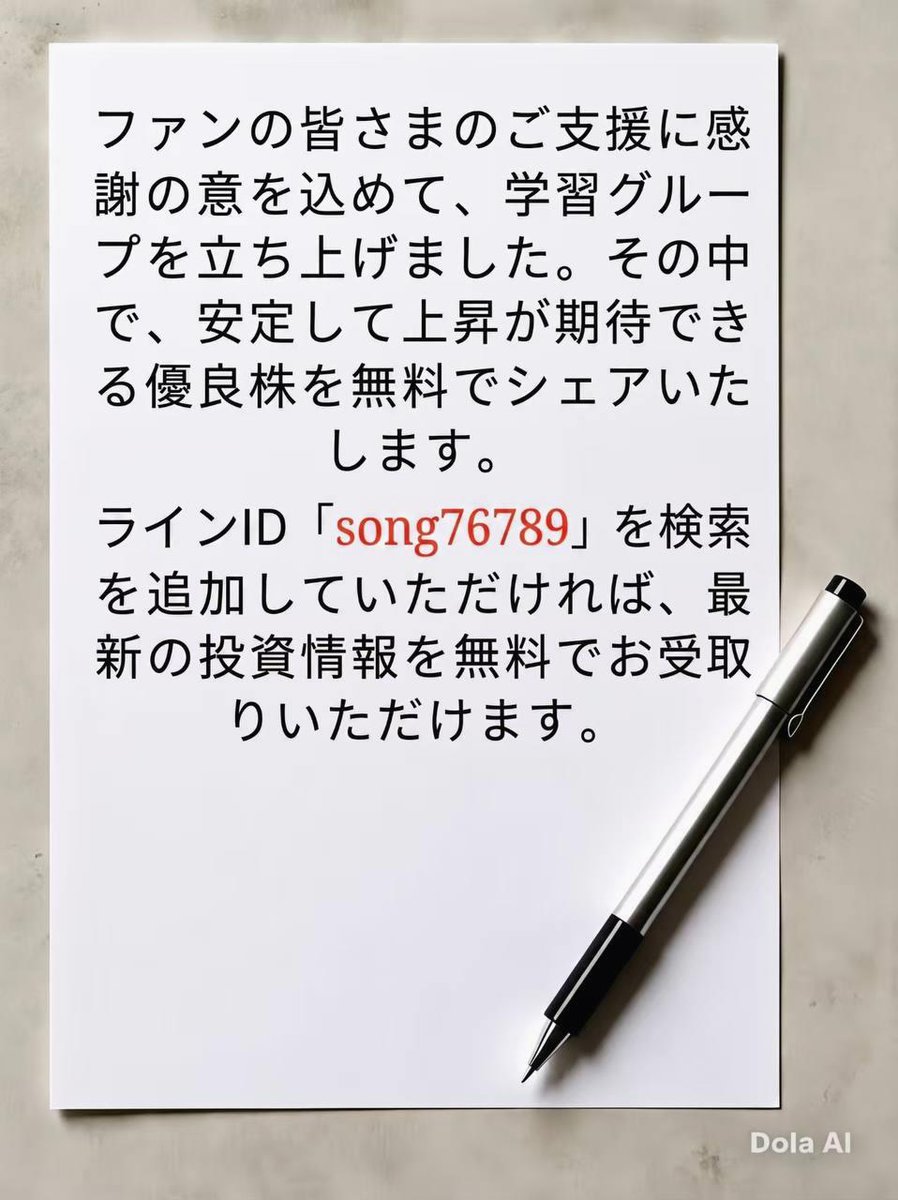 ファンの皆さまのご支援に感
謝の意を込めて、学習グルー
プを立ち上げました。その中
で、安定して上昇が期待でき
る優良株を無料でシェアいた
します。
ラインID「song76789」を検索
を追加していただければ、最
新の投資情報を無料でお受取
りいただけます。
Dola AI